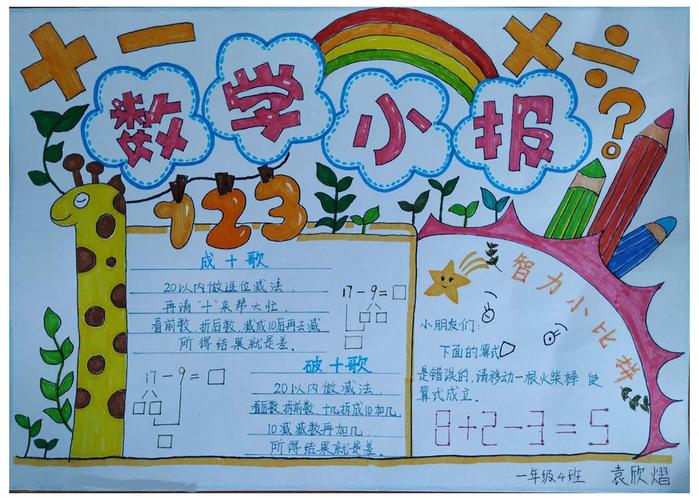 数学小报
123
成十歌
20以内做退位减法,
再请“十”来帮大忙.
看前数,折后数,减成10后再去减
所得结果就是差.
17-9=□
17-9=□
破十歌
20以内做减法,
看后数,拆前数,十几拆成10加几,
10减减数再加几,
所得结果就是差.
智力小比拼
小朋友们:
下面的算式
是错误的,请移动一根火柴棒,使
算式成立.
8+2-3=5
一年级4班
袁欣熠